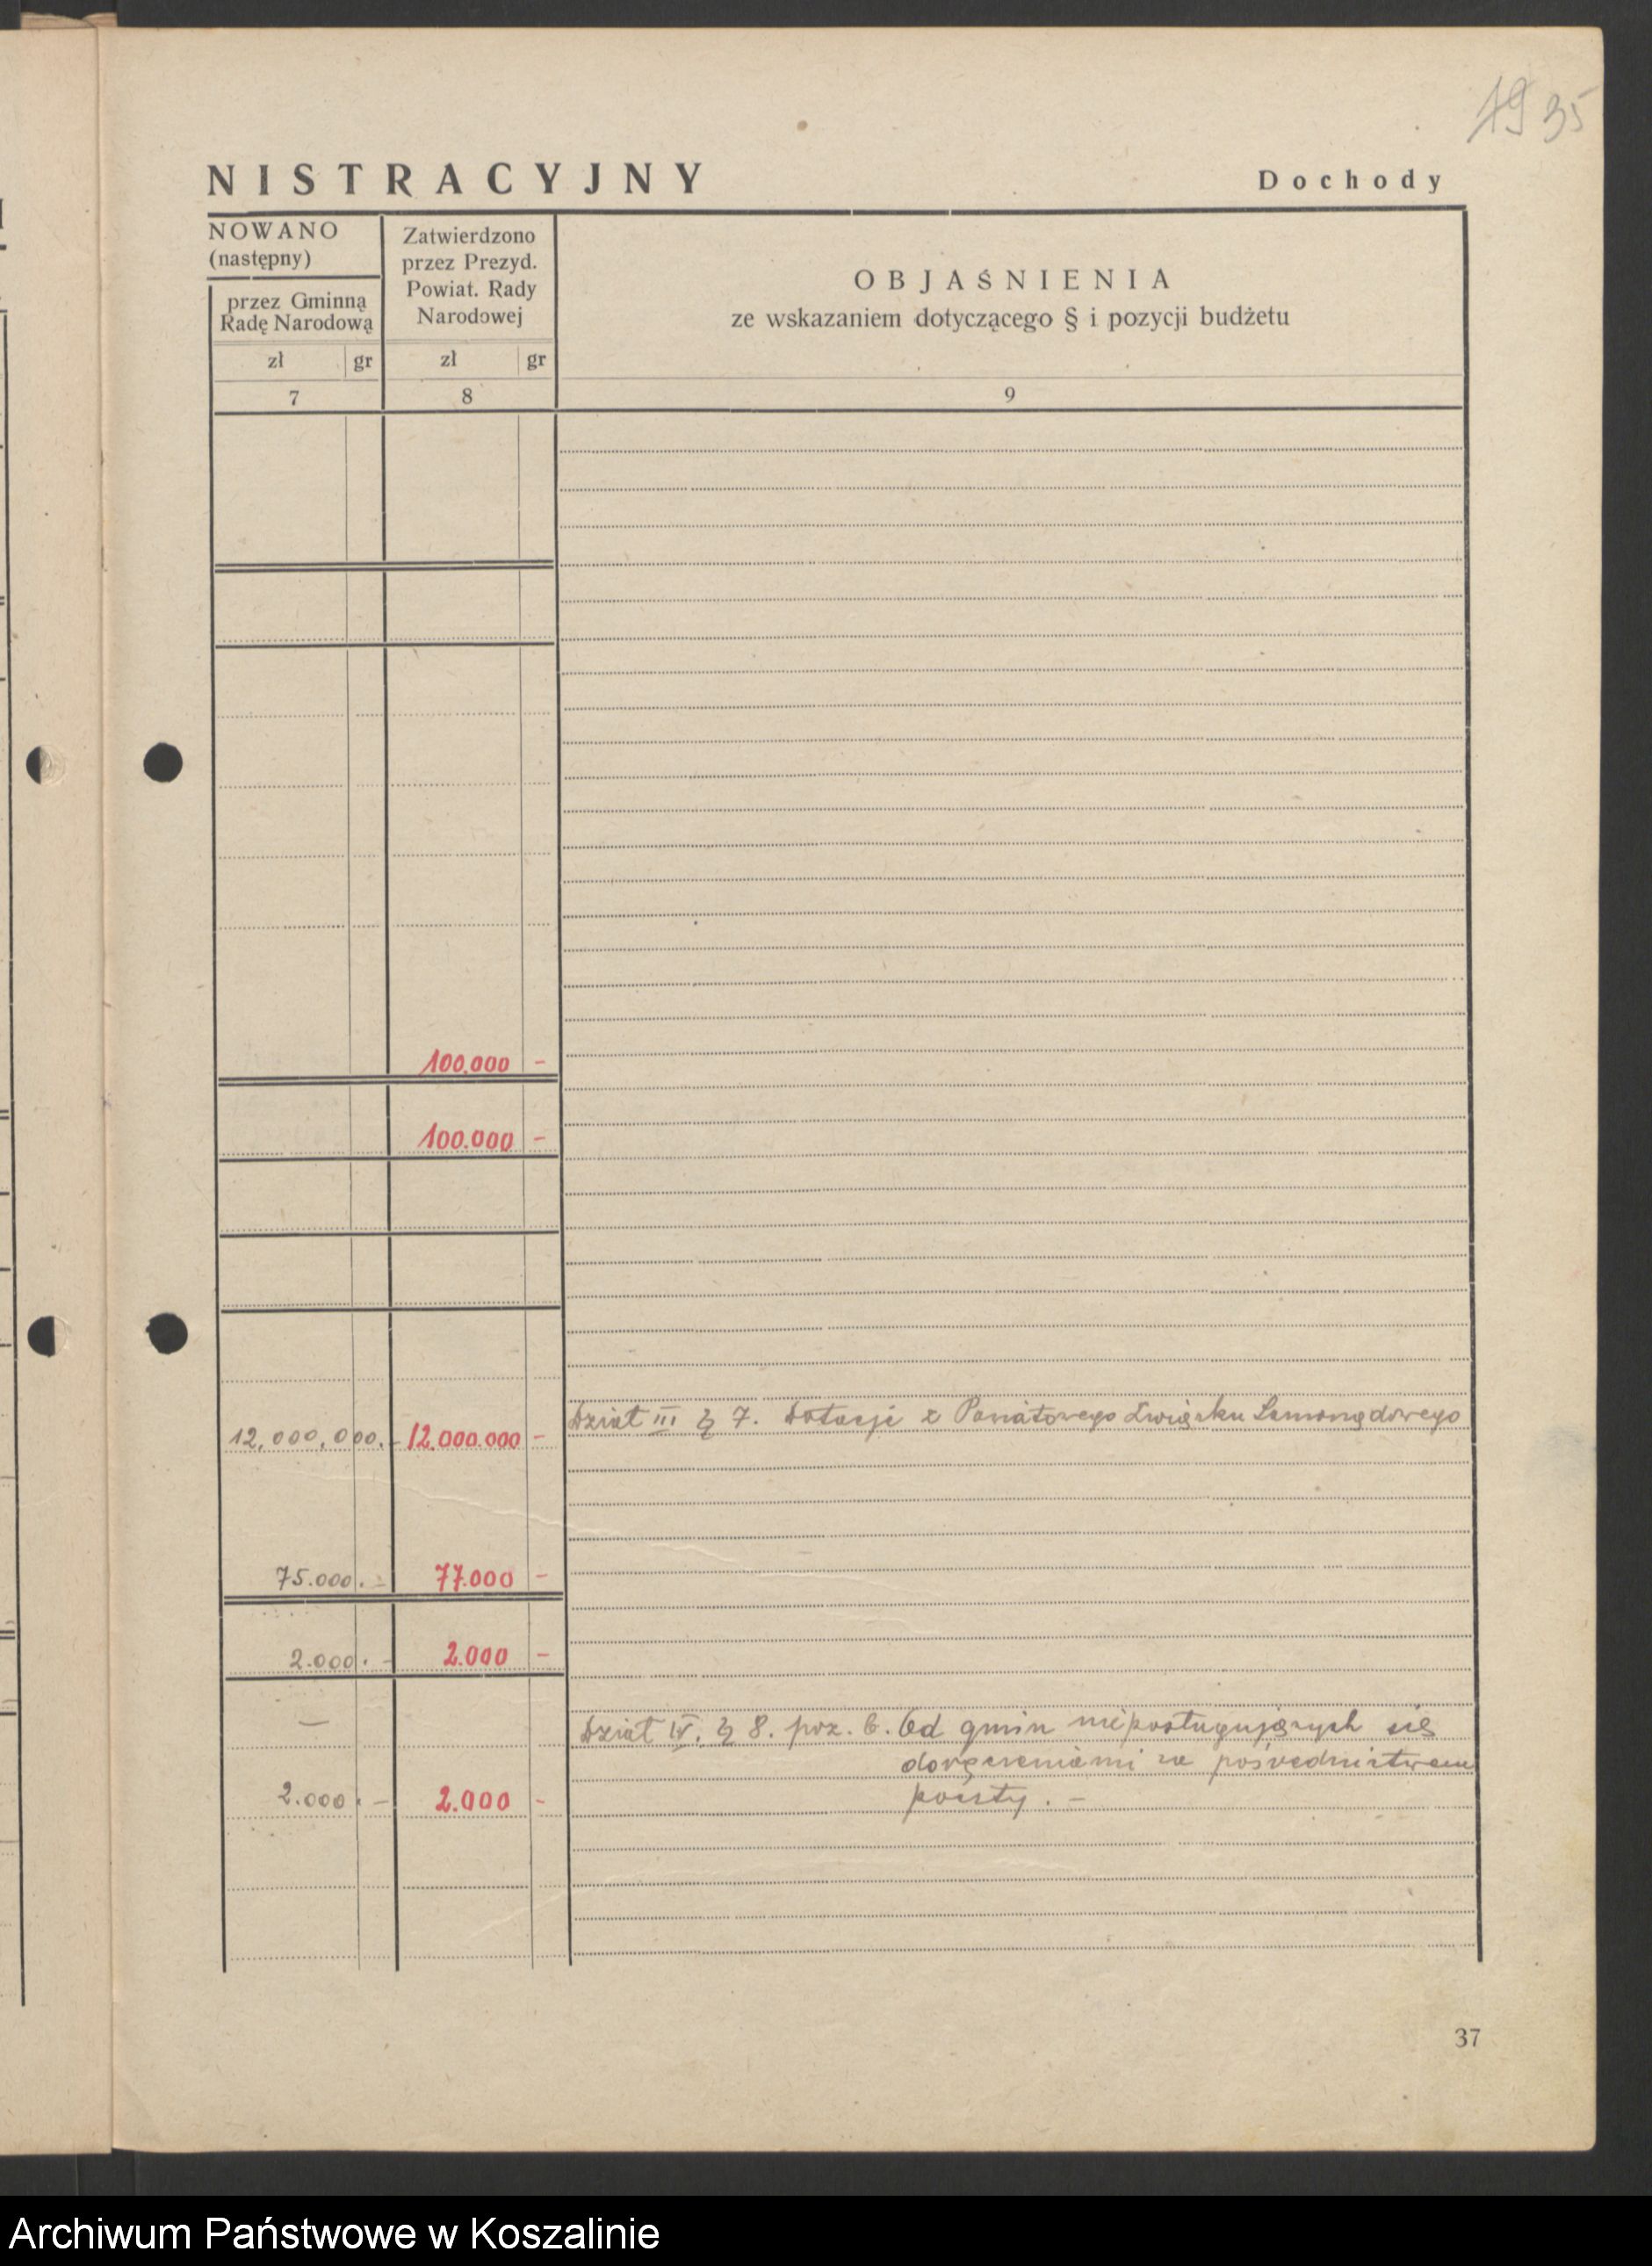 19 35
NISTRACYJNY
Dochody
NOWANO
(następny)
przez Gminną
Radę Narodową
zł gr
7
Zatwierdzono
przez Prezyd.
Powiat. Rady
Narodowej
zł gr
8
OBJAŚNIENIA
ze wskazaniem dotyczącego § i pozycji budżetu
9
100.000 -
100.000 -
Dział III § 7. Dotacje z Powiatowego Związku Samorządowego
12,000,000.- 12.000.000 -
75.000.- 77.000 -
2.000.- 2.000 -
—
Dział IV. § 8. poz. 6. Od gmin nieposługujących się
doręczeniami za pośrednictwem
2.000.- 2.000 -
poczty. -
37
Archiwum Państwowe w Koszalinie